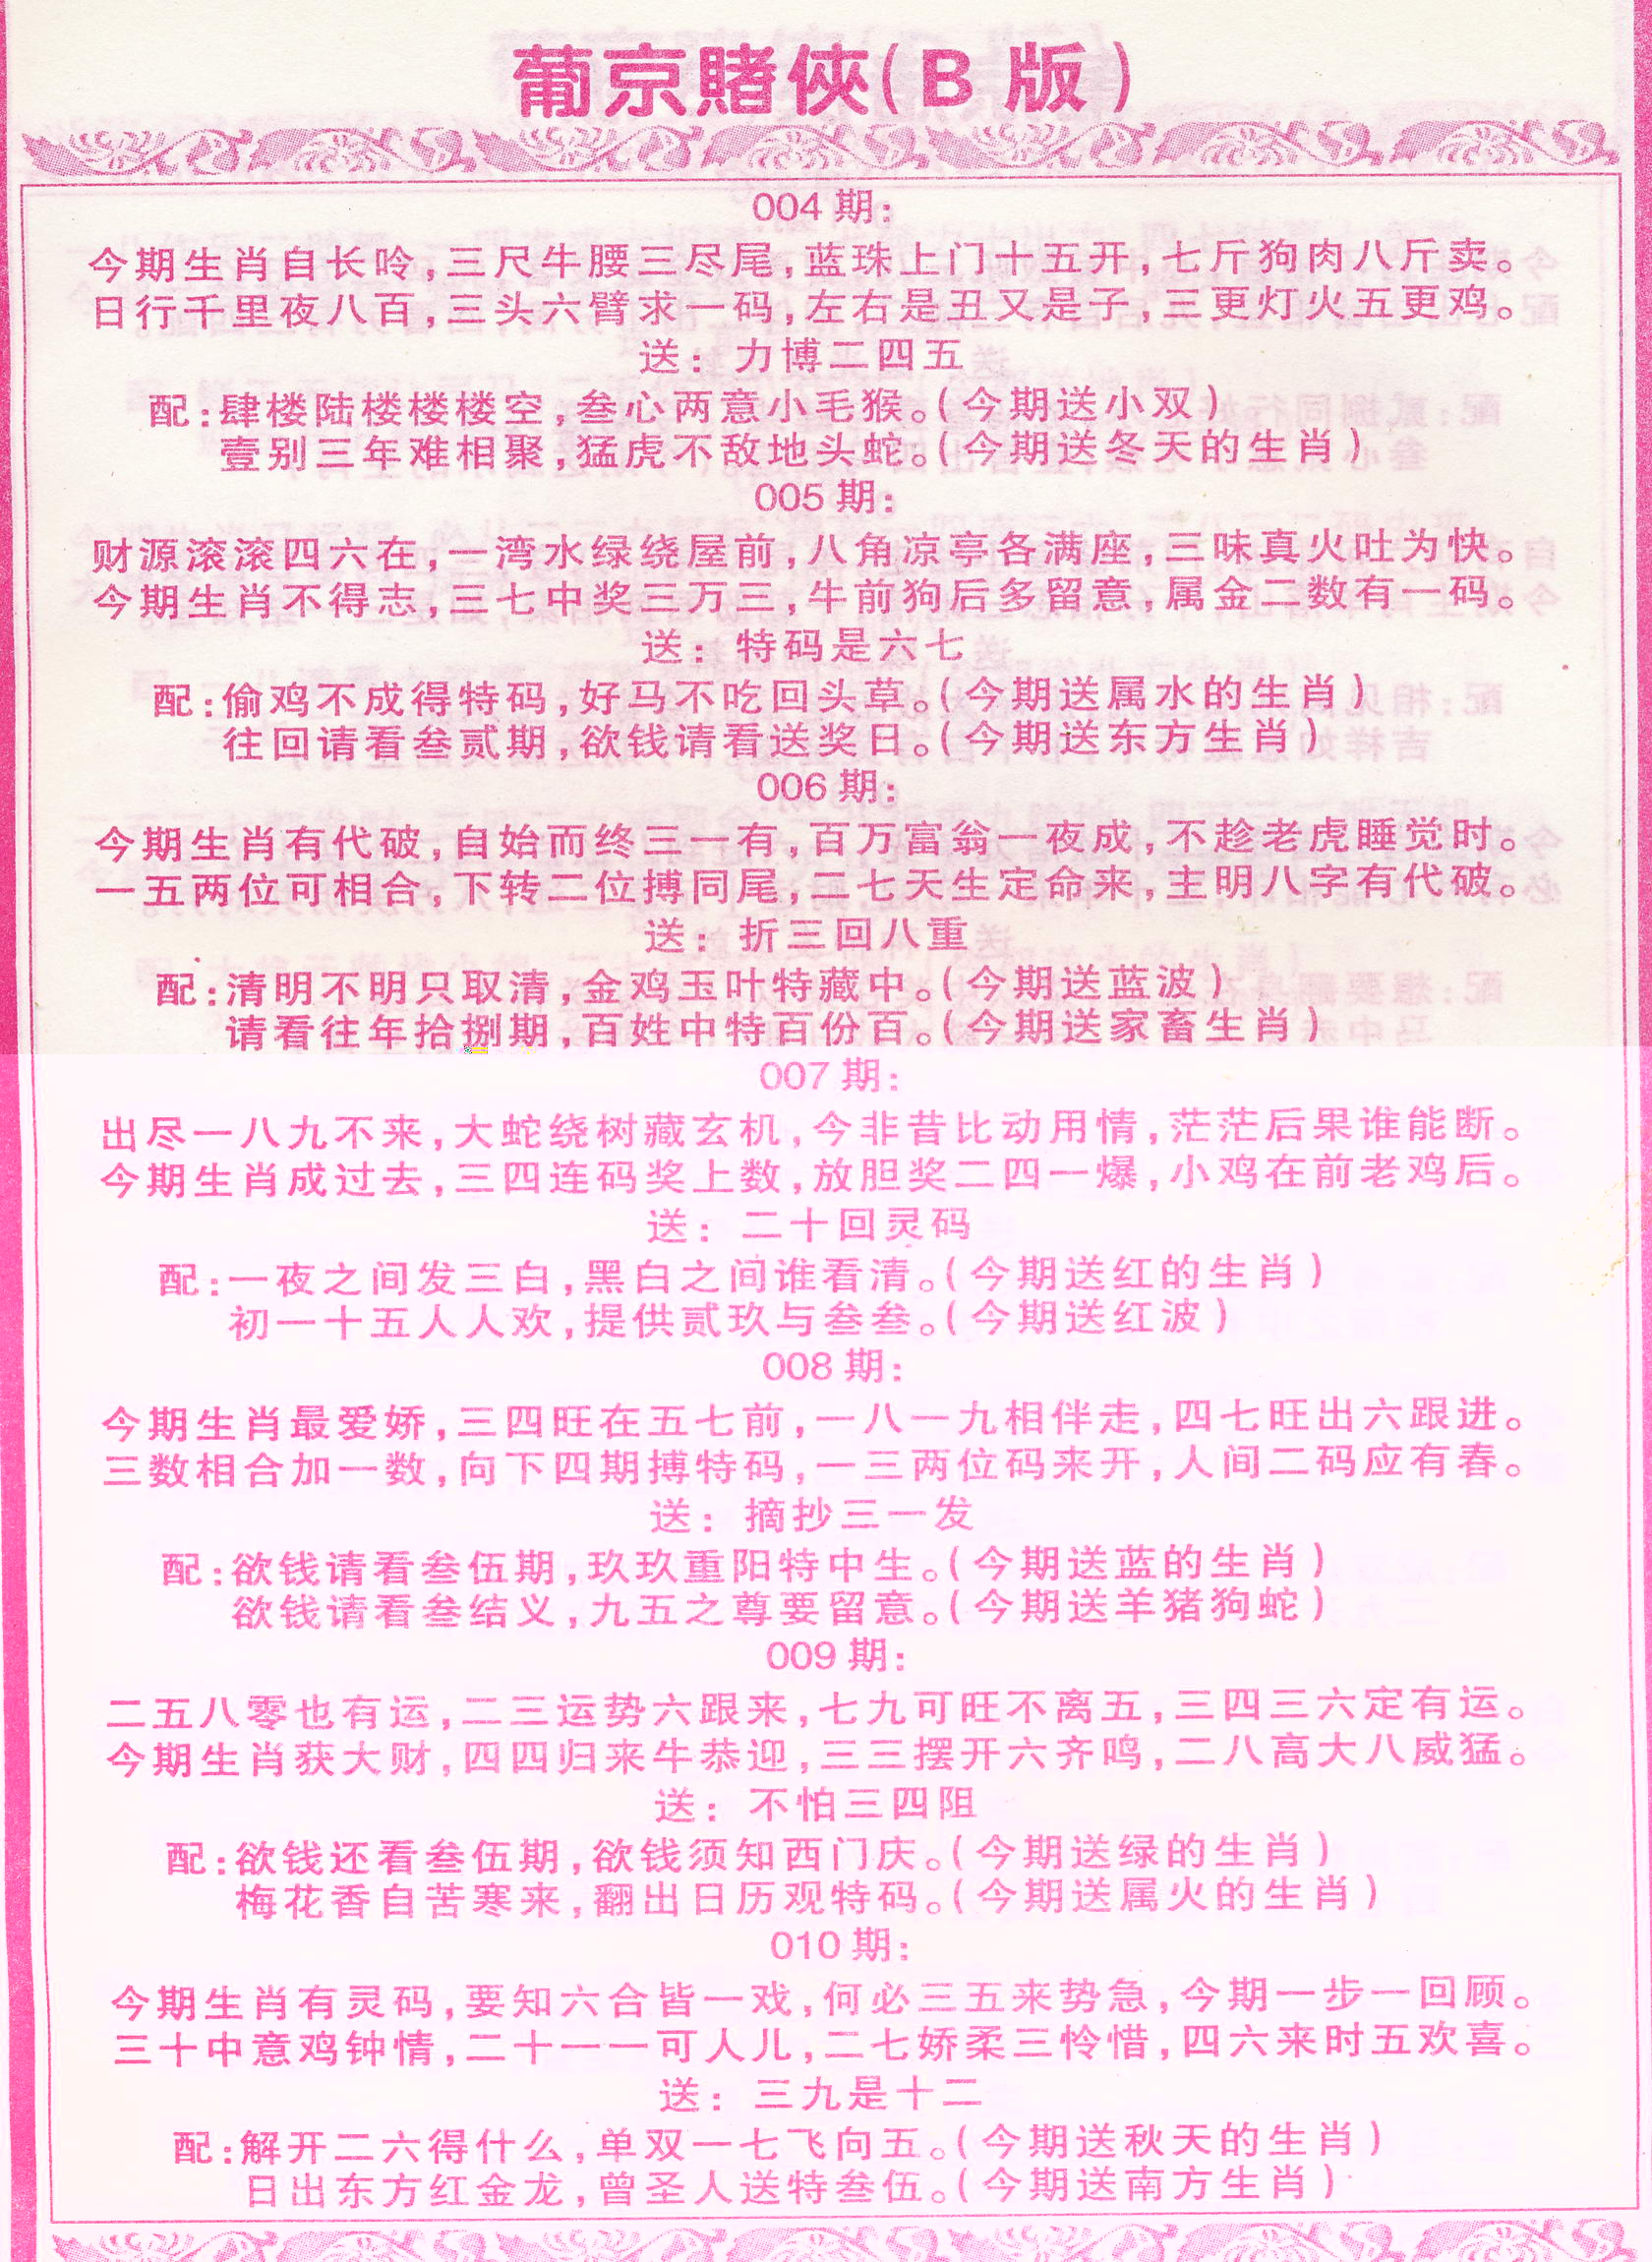 葡京賭俠(B 版)
004 期:
今期生肖自长呤,三尺牛腰三尽尾,蓝珠上门十五开,七斤狗肉八斤卖。
日行千里夜八百,三头六臂求一码,左右是丑又是子,三更灯火五更鸡。
送: 力博二四五
配:肆楼陆楼楼楼空,叁心两意小毛猴。(今期送小双)
壹别三年难相聚,猛虎不敌地头蛇。(今期送冬天的生肖)
005 期:
财源滚滚四六在,一湾水绿绕屋前,八角凉亭各满座,三味真火吐为快。
今期生肖不得志,三七中奖三万三,牛前狗后多留意,属金二数有一码。
送: 特码是六七
配:偷鸡不成得特码,好马不吃回头草。(今期送属水的生肖)
往回请看叁贰期,欲钱请看送奖日。(今期送东方生肖)
006 期:
今期生肖有代破,自始而终三一有,百万富翁一夜成,不趁老虎睡觉时。
一五两位可相合,下转二位搏同尾,二七天生定命来,主明八字有代破。
送: 折三回八重
配:清明不明只取清,金鸡玉叶特藏中。(今期送蓝波)
请看往年拾捌期,百姓中特百份百。(今期送家畜生肖)
007 期:
出尽一八九不来,大蛇绕树藏玄机,今非昔比动用情,茫茫后果谁能断。
今期生肖成过去,三四连码奖上数,放胆奖二四一爆,小鸡在前老鸡后。
送: 二十回灵码
配:一夜之间发三白,黑白之间谁看清。(今期送红的生肖)
初一十五人人欢,提供贰玖与叁叁。(今期送红波)
008 期:
今期生肖最爱娇,三四旺在五七前,一八一九相伴走,四七旺出六跟进。
三数相合加一数,向下四期搏特码,一三两位码来开,人间二码应有春。
送: 摘抄三一发
配:欲钱请看叁伍期,玖玖重阳特中生。(今期送蓝的生肖)
欲钱请看叁结义,九五之尊要留意。(今期送羊猪狗蛇)
009 期:
二五八零也有运,二三运势六跟来,七九可旺不离五,三四三六定有运。
今期生肖获大财,四四归来牛恭迎,三三摆开六齐鸣,二八高大八威猛。
送: 不怕三四阻
配:欲钱还看叁伍期,欲钱须知西门庆。(今期送绿的生肖)
梅花香自苦寒来,翻出日历观特码。(今期送属火的生肖)
010 期:
今期生肖有灵码,要知六合皆一戏,何必三五来势急,今期一步一回顾。
三十中意鸡钟情,二十一一可人儿,二七娇柔三怜惜,四六来时五欢喜。
送: 三九是十二
配:解开二六得什么,单双一七飞向五。(今期送秋天的生肖)
日出东方红金龙,曾圣人送特叁伍。(今期送南方生肖)